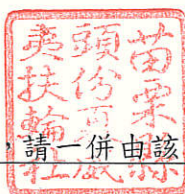 苗栗縣
頭份夏威
夷扶輪社
，請一併由該